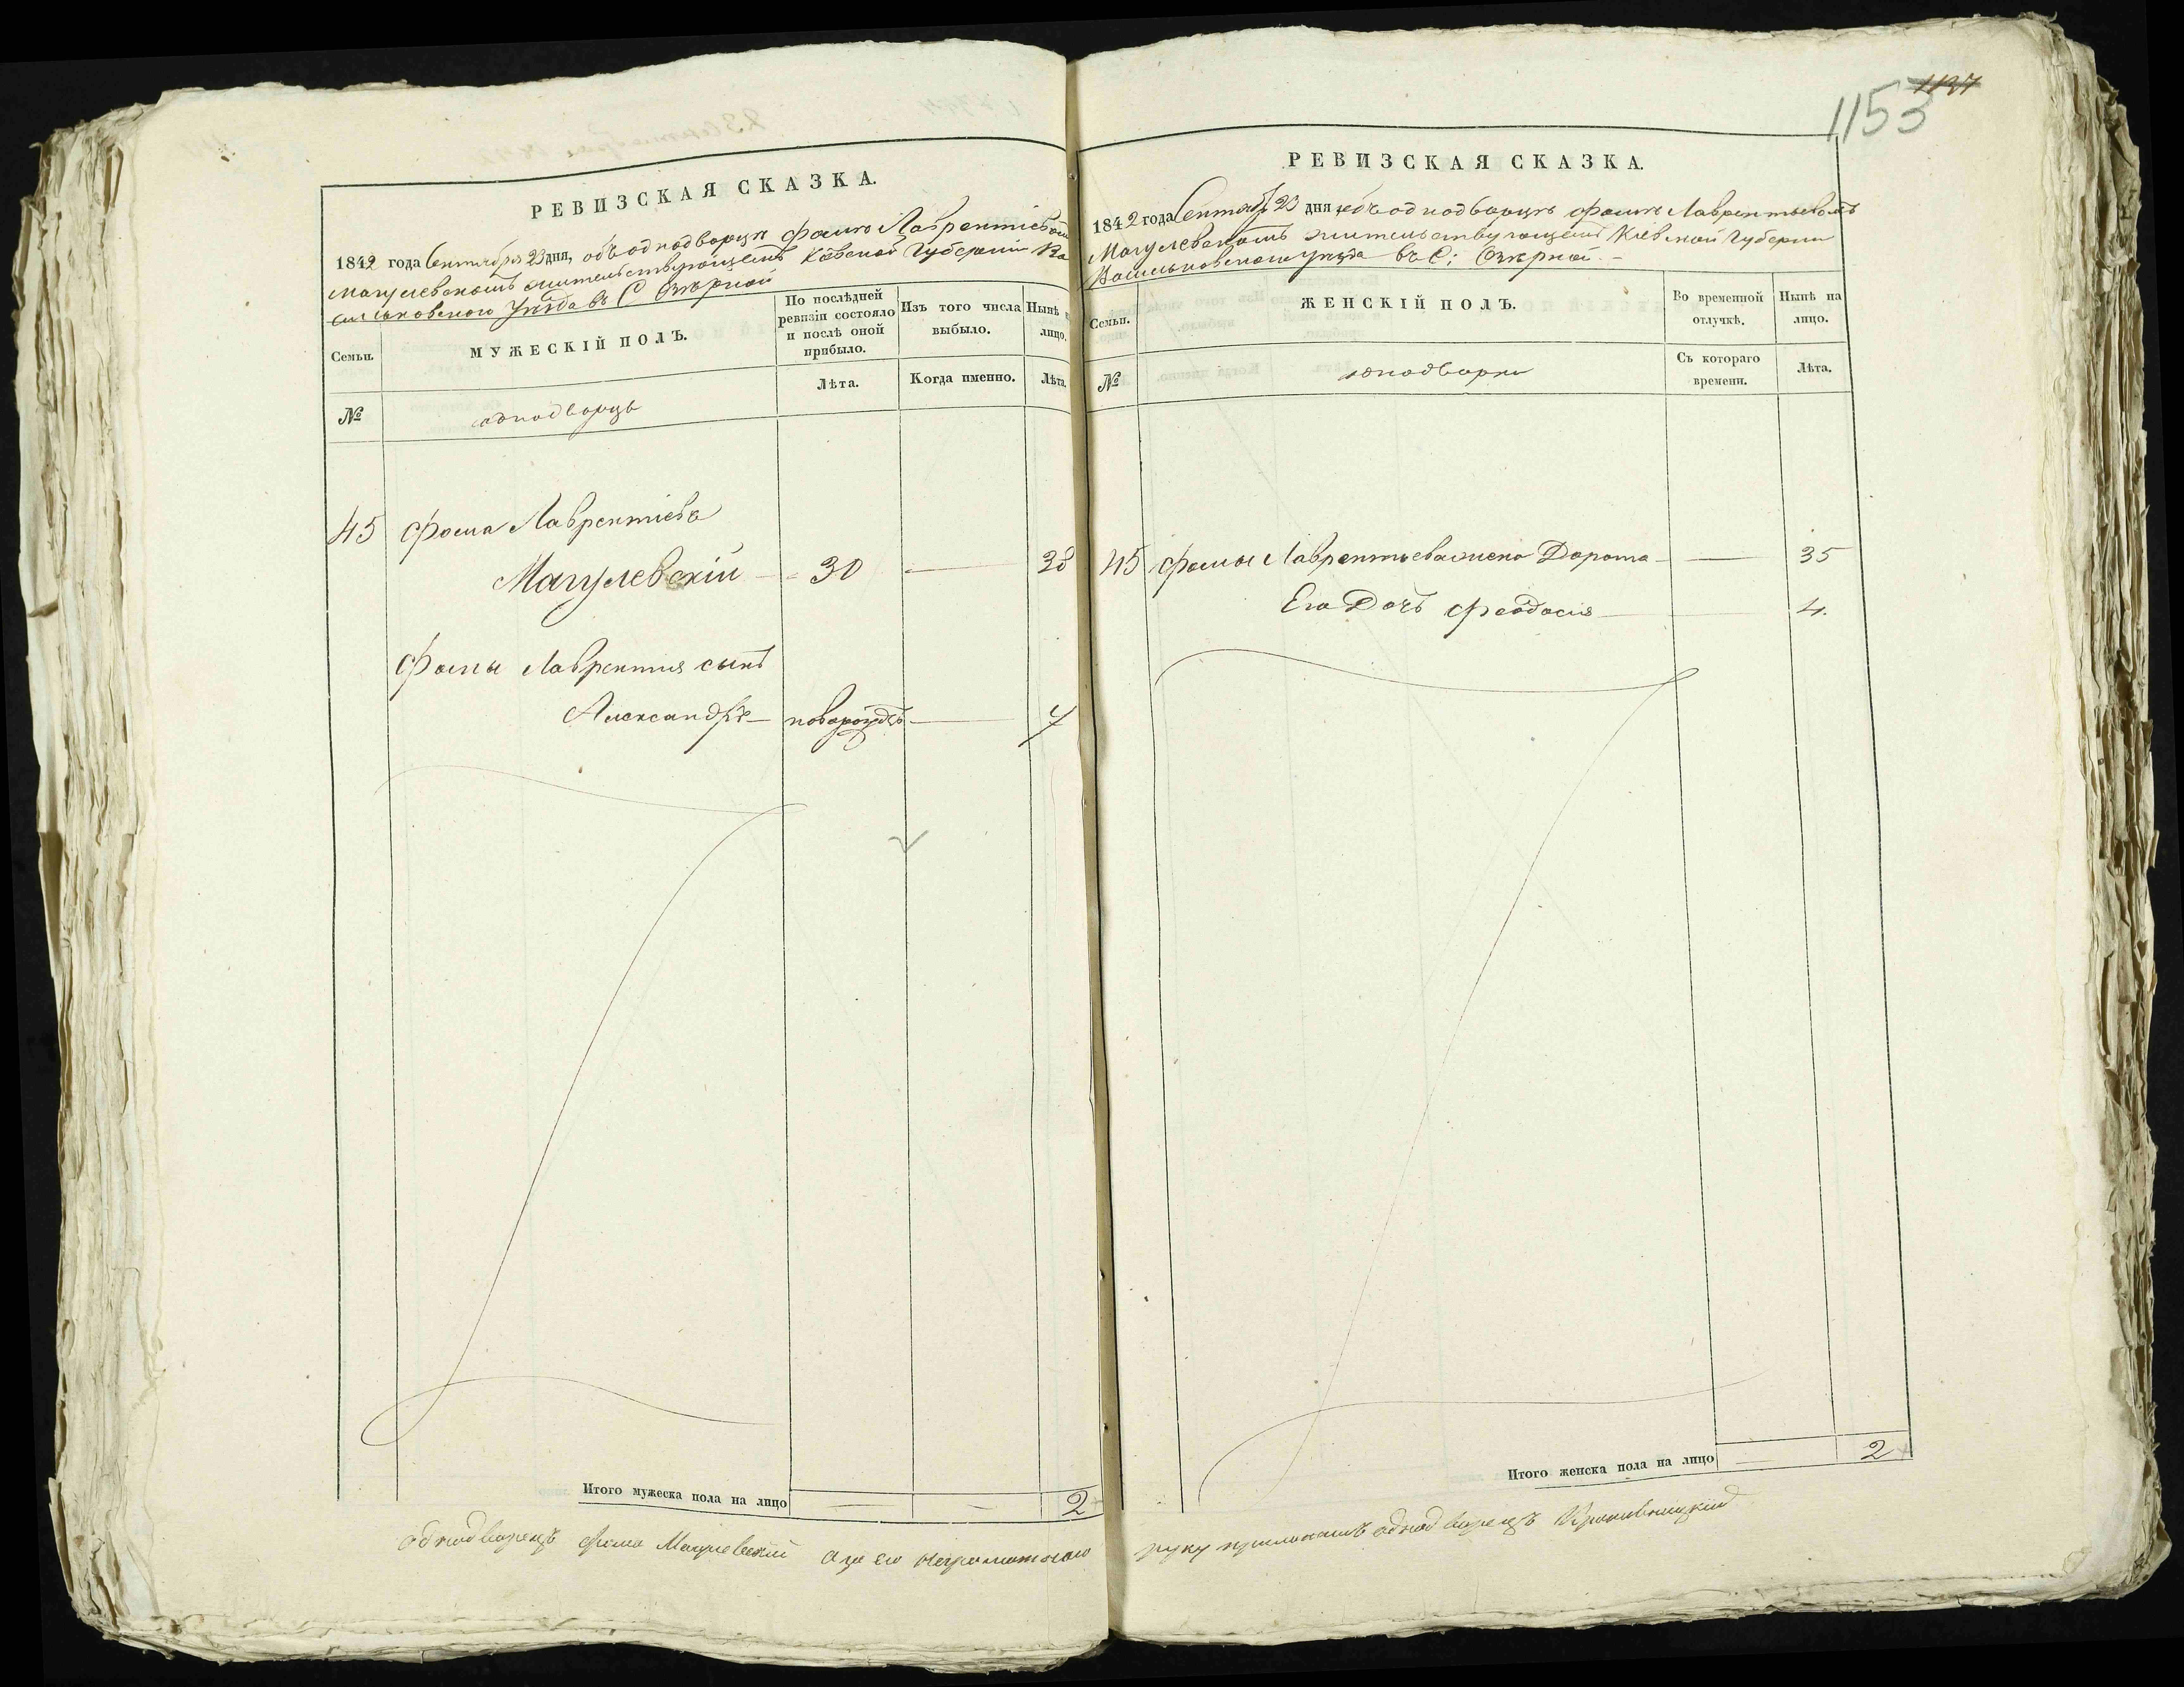 РЕВИЗСКАЯ СКАЗКА.
1842 года Сентября 23 дня, объ однодворцѣ Фомѣ Лаврентіевом
Магулевскомъ жительствующемъ Кіевской Губерніи Ва
сильковского Уѣзда въ С Озѣрной
Семьи.
МУЖЕСКІЙ ПОЛЪ.
По послѣдней ревизіи состояло и послѣ оной прибыло.
Изъ того числа выбыло.
Нынѣ на лицо.
№
однодворцъ
Лѣта.
Когда именно.
Лѣта.
45 Фома Лаврентіевъ
Магулевскій - 30 — 38
Фомы Лаврентия сынъ
Александръ — новорожде — 7
Итого мужеска пола на лицо — — 2
однодворецъ Фома Магулевский а за его неграмотного
1137
1153
РЕВИЗСКАЯ СКАЗКА.
1842 года Сентяб 23 дня объ однодворцѣ Фомѣ Лаврентьевомъ
Магулевскомъ жительствующемъ Кіевской Губернии
Васильковского уѣзда въ С: Озѣрной. -
Семьи.
ЖЕНСКІЙ ПОЛЪ.
Во временной отлучкѣ.
Нынѣ на лицо.
№
однодворки
Съ котораго времени.
Лѣта.
45 Фомы Лаврентьева жена Дорота — — 35
Его Дочъ Феодосия — 4.
Итого женска пола на лицо — 2
руку приложилъ однодворецъ